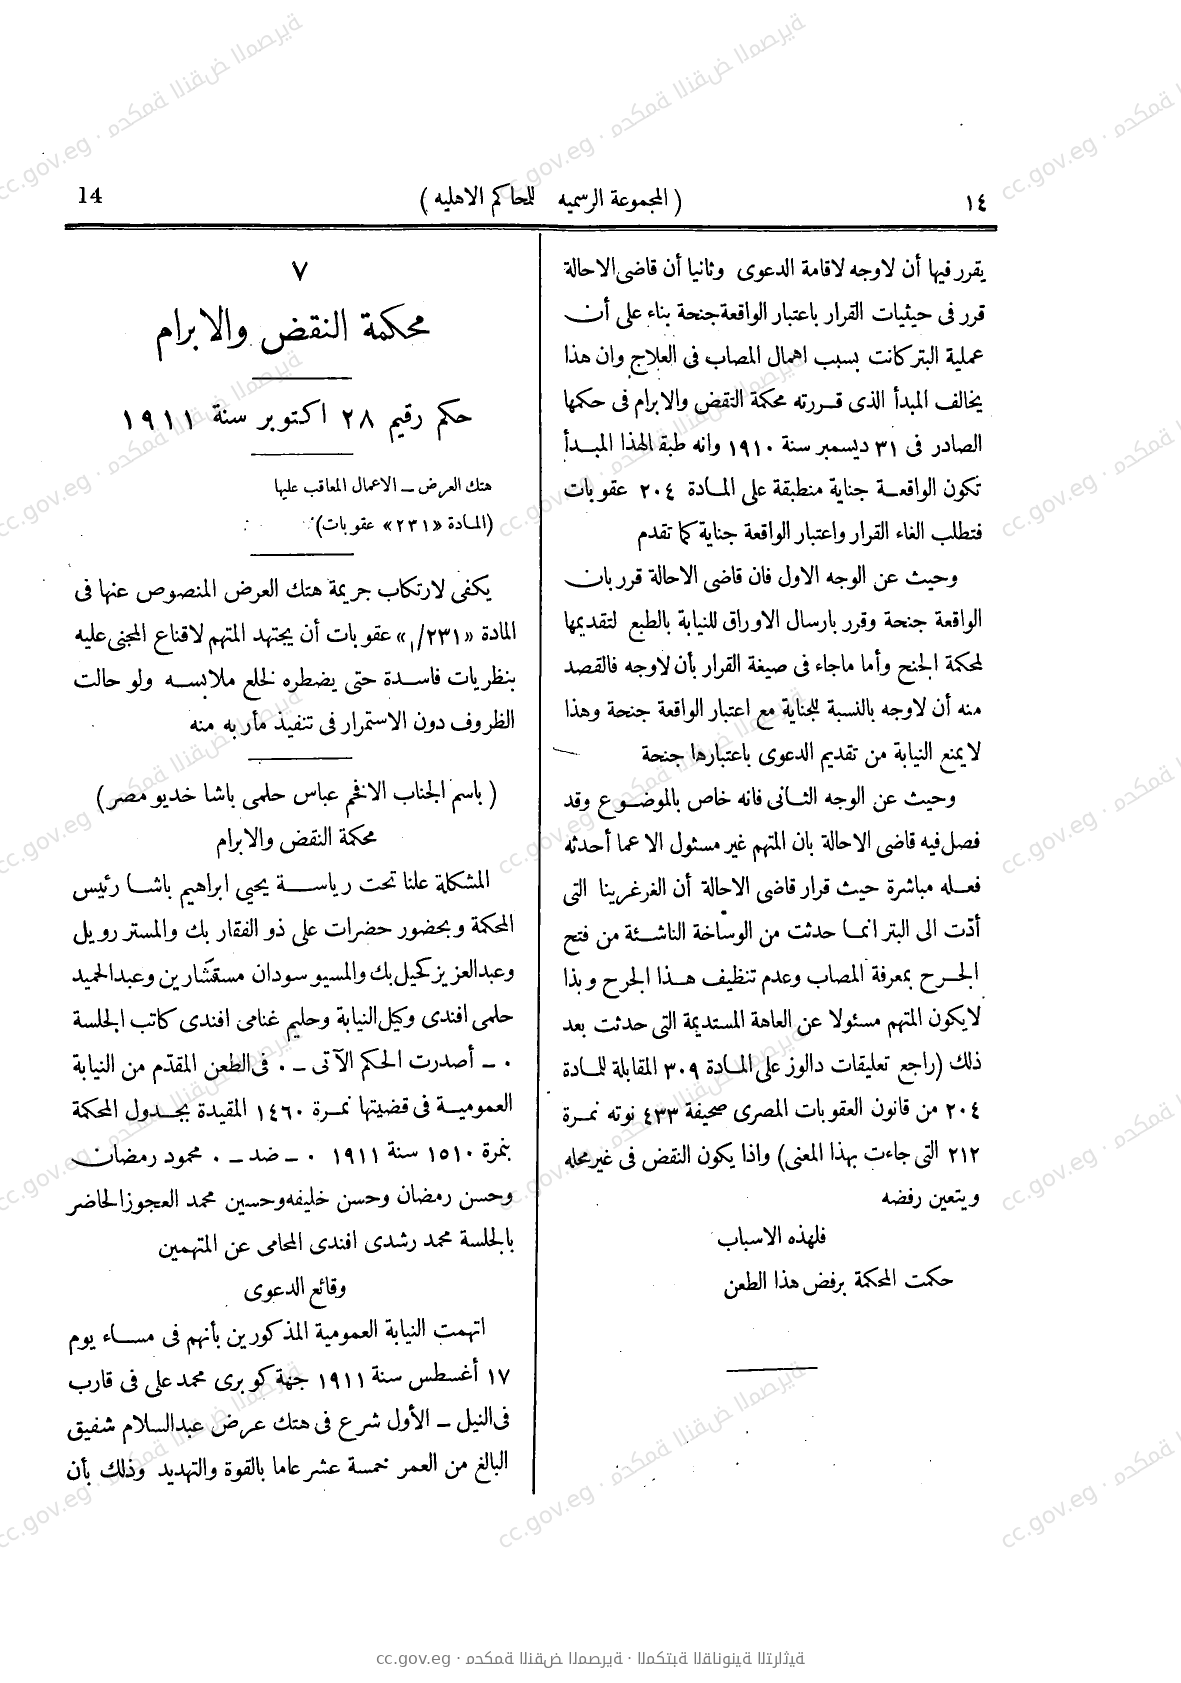 ١٤
( المجموعة الرسميه للمحاكم الاهليه )
14
يقرر فيها أن لاوجه لاقامة الدعوى وثانيا أن قاضى الاحالة
قرر فى حيثيات القرار باعتبار الواقعة جنحة بناء على أن
عملية البتر كانت بسبب اهمال المصاب فى العلاج وان هذا
يخالف المبدأ الذى قررته محكمة النقض والابرام فى حكمها
الصادر فى ٣١ ديسمبر سنة ١٩١٠ وانه طبقا لهذا المبدأ
تكون الواقعة جناية منطبقة على المادة ٢٠٤ عقوبات
فتطلب الغاء القرار واعتبار الواقعة جناية كما تقدم
وحيث عن الوجه الاول فان قاضى الاحالة قرر بان
الواقعة جنحة وقرر بارسال الاوراق للنيابة بالطبع لتقديمها
لمحكمة الجنح وأما ماجاء فى صيغة القرار بأن لاوجه فالقصد
منه أن لاوجه بالنسبة للجناية مع اعتبار الواقعة جنحة وهذا
لا يمنع النيابة من تقديم الدعوى باعتبارها جنحة
وحيث عن الوجه الثانى فانه خاص بالموضوع وقد
فصل فيه قاضى الاحالة بان المتهم غير مسئول الا عما أحدثه
فعله مباشرة حيث قرار قاضى الاحالة أن الغرغرينا التى
أدّت الى البتر انما حدثت من الوساخة الناشئة من فتح
الجرح بمعرفة المصاب وعدم تنظيف هذا الجرح وبذا
لا يكون المتهم مسئولا عن العاهة المستديمة التى حدثت بعد
ذلك (راجع تعليقات دالوز على المادة ٣٠٩ المقابلة للمادة
٢٠٤ من قانون العقوبات المصرى صحيفة ٤٣٣ نوته نمرة
٢١٢ التى جاءت بهذا المعنى) واذا يكون النقض فى غير محله
ويتعين رفضه
فلهذه الاسباب
حكمت المحكمة برفض هذا الطعن
٧
محكمة النقض والابرام
حكم رقيم ٢٨ اكتوبر سنة ١٩١١
هتك العرض – الاعمال المعاقب عليها
(المادة «٢٣١» عقوبات)
يكفى لارتكاب جريمة هتك العرض المنصوص عنها فى
المادة «٢٣١/١» عقوبات أن يجتهد المتهم لاقناع المجنى عليه
بنظريات فاسدة حتى يضطره لخلع ملابسه ولو حالت
الظروف دون الاستمرار فى تنفيذ مأربه منه
( باسم الجناب الافخم عباس حلمى باشا خديو مصر )
محكمة النقض والابرام
المشكلة علنا تحت رياسة يحيى ابراهيم باشا رئيس
المحكمة وبحضور حضرات على ذو الفقار بك والمستر رويل
وعبدالعزيز كحيل بك والمسيو سودان مستشارين وعبدالحميد
حلمى افندى وكيل النيابة وحليم غنامى افندى كاتب الجلسة
٠ – أصدرت الحكم الآتى – ٠ فى الطعن المقدّم من النيابة
العمومية فى قضيتها نمرة ١٤٦٠ المقيدة بجدول المحكمة
بنمرة ١٥١٠ سنة ١٩١١ ٠ – ضد – ٠ محمود رمضان
وحسن رمضان وحسن خليفه وحسين محمد العجوز الحاضر
بالجلسة محمد رشدى افندى المحامى عن المتهمين
وقائع الدعوى
اتهمت النيابة العمومية المذكورين بأنهم فى مساء يوم
١٧ أغسطس سنة ١٩١١ جهة كوبرى محمد على فى قارب
فى النيل – الأول شرع فى هتك عرض عبدالسلام شفيق
البالغ من العمر خمسة عشر عاما بالقوة والتهديد وذلك بأن
cc.gov.eg · محكمة النقض المصرية · المكتبة القانونية التراثية